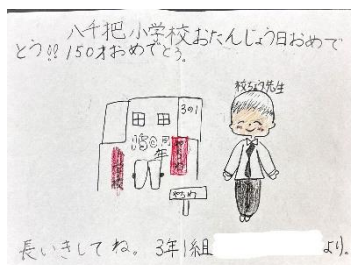 八千把小学校おたんじょう日おめで
とう!!150才おめでとう。
校ちょう先生
3の1
長いきしてね。3年1組
より。